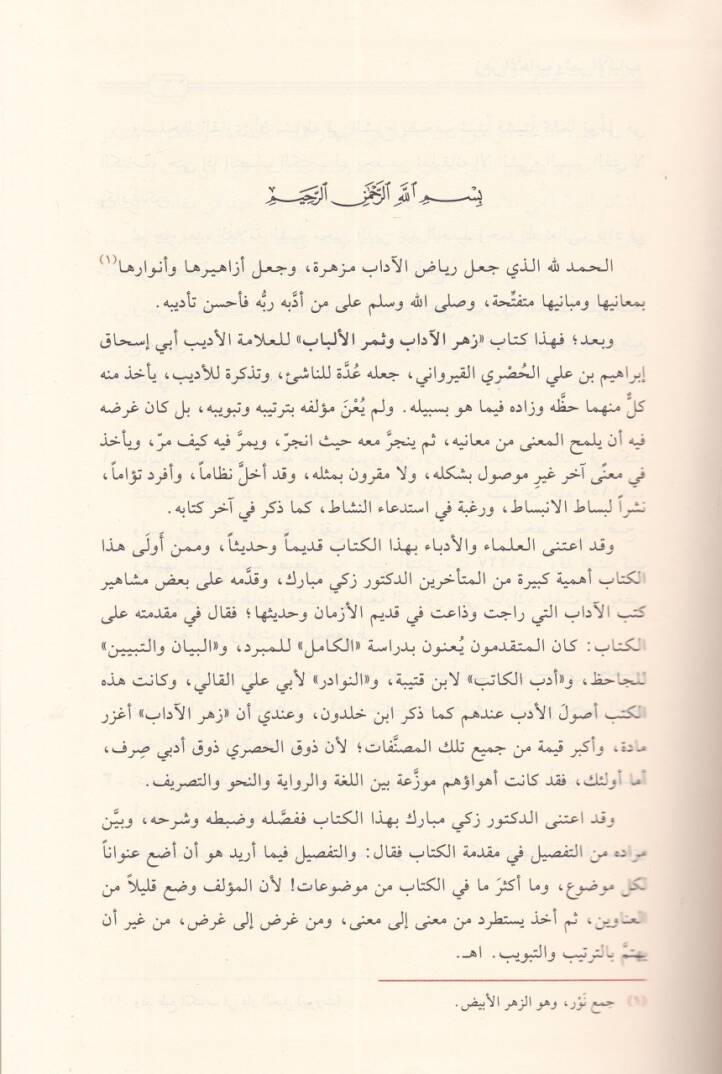 بِسْمِ ٱللَّهِ ٱلرَّحْمَٰنِ ٱلرَّحِيمِ
الحمد لله الذي جعل رياض الآداب مزهرة، وجعل أزاهيرها وأنوارها(١)
بمعانيها ومبانيها متفتِّحة، وصلى الله وسلم على من أدَّبه ربُّه فأحسن تأديبه.
وبعد؛ فهذا كتاب «زهر الآداب وثمر الألباب» للعلامة الأديب أبي إسحاق
إبراهيم بن علي الحُصْري القيرواني، جعله عُدَّة للناشئ، وتذكرة للأديب، يأخذ منه
كلٌّ منهما حظَّه وزاده فيما هو بسبيله. ولم يُعْنَ مؤلفه بترتيبه وتبويبه، بل كان غرضه
فيه أن يلمح المعنى من معانيه، ثم ينجرَّ معه حيث انجرّ، ويمرَّ فيه كيف مرّ، ويأخذ
في معنًى آخر غيرِ موصول بشكله، ولا مقرون بمثله، وقد أخلَّ نظاماً، وأفرد تؤاماً،
نشراً لبساط الانبساط، ورغبة في استدعاء النشاط، كما ذكر في آخر كتابه.
وقد اعتنى العلماء والأدباء بهذا الكتاب قديماً وحديثاً، وممن أَولَى هذا
الكتاب أهمية كبيرة من المتأخرين الدكتور زكي مبارك، وقدَّمه على بعض مشاهير
كتب الآداب التي راجت وذاعت في قديم الأزمان وحديثها؛ فقال في مقدمته على
الكتاب: كان المتقدمون يُعنون بدراسة «الكامل» للمبرد، و«البيان والتبيين»
للجاحظ، و«أدب الكاتب» لابن قتيبة، و«النوادر» لأبي علي القالي، وكانت هذه
الكتب أصولَ الأدب عندهم كما ذكر ابن خلدون، وعندي أن «زهر الآداب» أغزر
مادة، وأكبر قيمة من جميع تلك المصنَّفات؛ لأن ذوق الحصري ذوق أدبي صِرف،
أما أولئك، فقد كانت أهواؤهم موزَّعة بين اللغة والرواية والنحو والتصريف.
وقد اعتنى الدكتور زكي مبارك بهذا الكتاب ففصَّله وضبطه وشرحه، وبيَّن
مراده من التفصيل في مقدمة الكتاب فقال: والتفصيل فيما أريد هو أن أضع عنواناً
لكل موضوع، وما أكثرَ ما في الكتاب من موضوعات! لأن المؤلف وضع قليلاً من
العناوين، ثم أخذ يستطرد من معنى إلى معنى، ومن غرض إلى غرض، من غير أن
يهتمَّ بالترتيب والتبويب. اهـ.
(١) جمع نَوْر، وهو الزهر الأبيض.